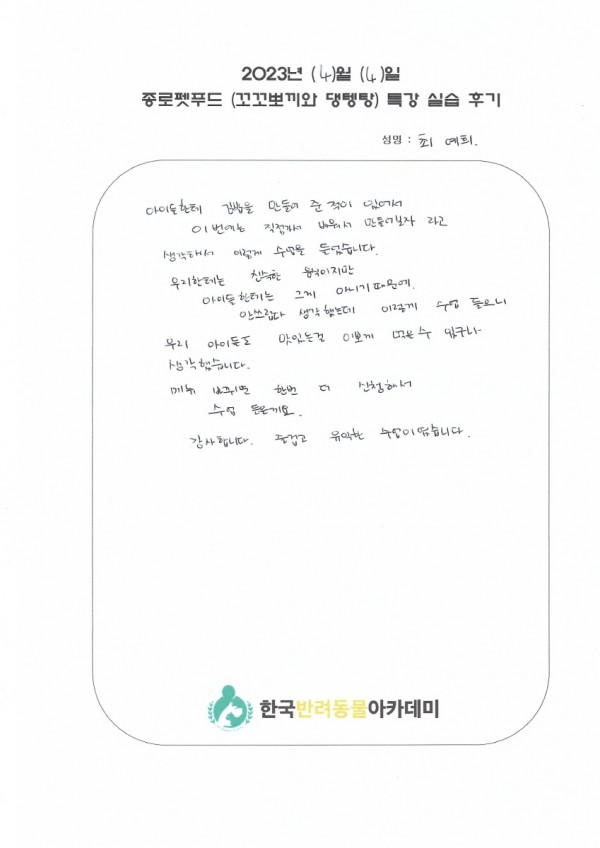 2023년 (4)월 (4)일
종로펫푸드 (꼬꼬뽀끼와 댕텡탕) 특강 실습 후기
성명 : 최 예희.
아이들한테 김밥을 만들어 준 적이 있어서
이번에는 직접가서 배워서 만들어보자 라고
생각해서 이렇게 수업을 들었습니다.
우리한테는 친숙한 음식이지만
아이들한테는 그게 아니기때문에.
안쓰럽다 생각했는데 이렇게 수업 들으니
우리 아이들도 맛있는걸 이렇게 먹을수 있구나
생각했습니다.
메뉴 바뀌면 한번 더 신청해서
수업 들을게요.
감사합니다. 즐겁고 유익한 수업이었습니다.
한국반려동물아카데미